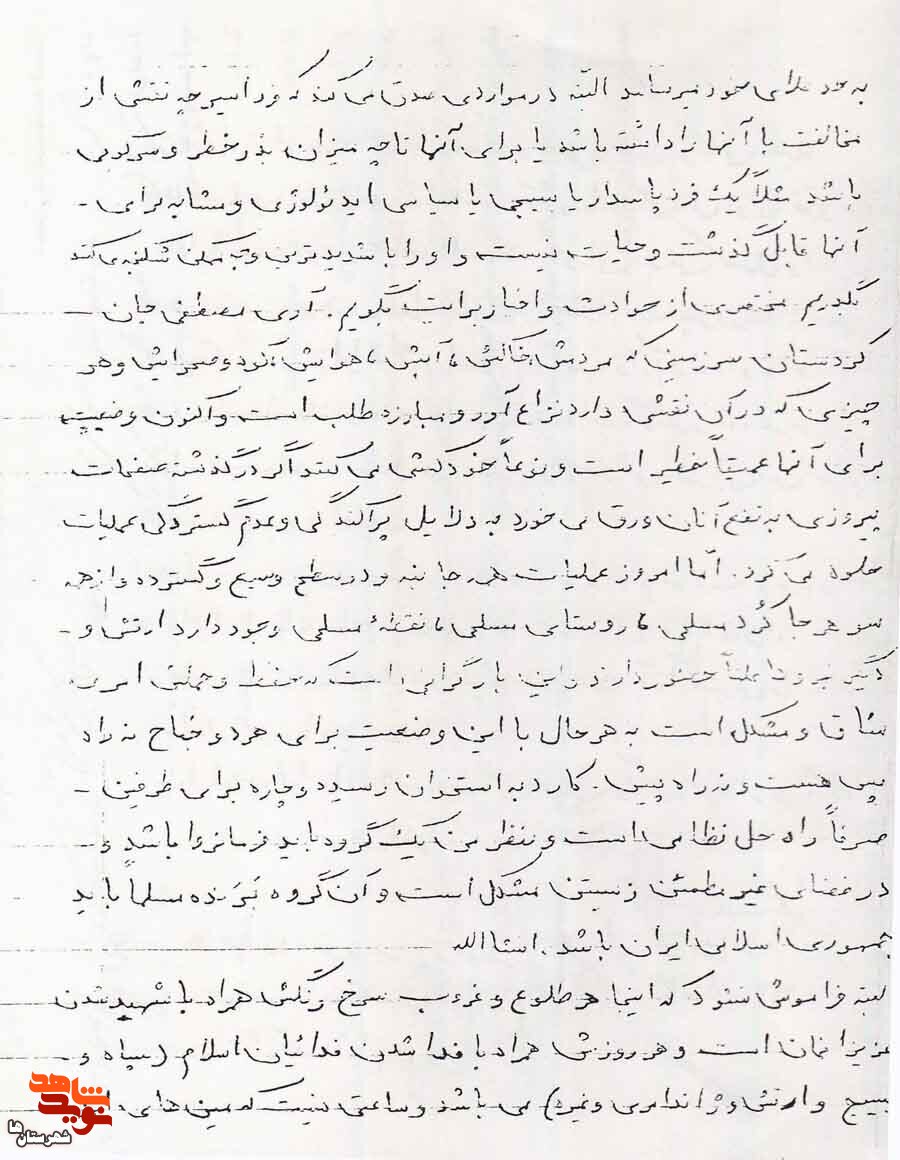 به حد علای خود میرساند البته در مواردی صدق می کند که فرد اسیر چه نقشی از
مخالفت با آنها را داشته باشد یا برای آنها تا چه میزان پذر خطر و سرکوبی
باشد مثلاً یک فرد پاسدار یا بسیجی یا سیاسی ایدئولوژی و مشابه برای -
آنها قابل گذشت و حیات نیست و او را با شدیدترین وجه ممکن شکنجه می کنند
بگذریم مختصری از حوادث و اخبار برایت بگویم. آری مصطفی جان -
کردستان سرزمینی که مردمش، خاکش، آبش، هوایش، کوه و صحرایش و هر
چیزی که در آن نقشی دارد نزاع آور و مبارزه طلب است و اکنون وضعیت
برای آنها عمیقاً خطیر است و نوعاً خودکشی می کنند اگر در گذشته صفحات
پیروزی به نفع آنان ورق می خورد به دلایل پراکندگی و عدم گستردگی عملیات
جلوه می کرد. امّا امروز عملیات همه جانبه و در سطح وسیع و گسترده و از همه
سو هر جا کُرد مسلمی، روستای مسلمی، نقطهٔ مسلمی وجود دارد ارتش و -
دیگر نیروها حضور دارند و این بار گرانی است که حفظ و حملش امری
شاق و مشکل است به هر حال با این وضعیت برای هر دو جناح نه راه
پس هست و نه راه پیش. کارد به استخوان رسیده و چاره برای طرفین -
صرفاً راه حل نظامی است و بنظر من یک گروه باید فرمانروا باشد و
در فضای غیر مطمئن زیستن مشکل است و آن گروه بَرَنده مسلماً باید
جمهوری اسلامی ایران باشد. انشاالله
البته فراموش نشود که اینجا هر طلوع و غروب سرخ رنگش همراه با شهید شدن
عزیزانمان است و هر روزش همراه با فدا شدن فدائیان اسلام (سپاه و
بسیج و ارتش و ژاندارمری و غیره) می باشد و ساعتی نیست که مین های
نوید شاهد
شهرستان‌ها